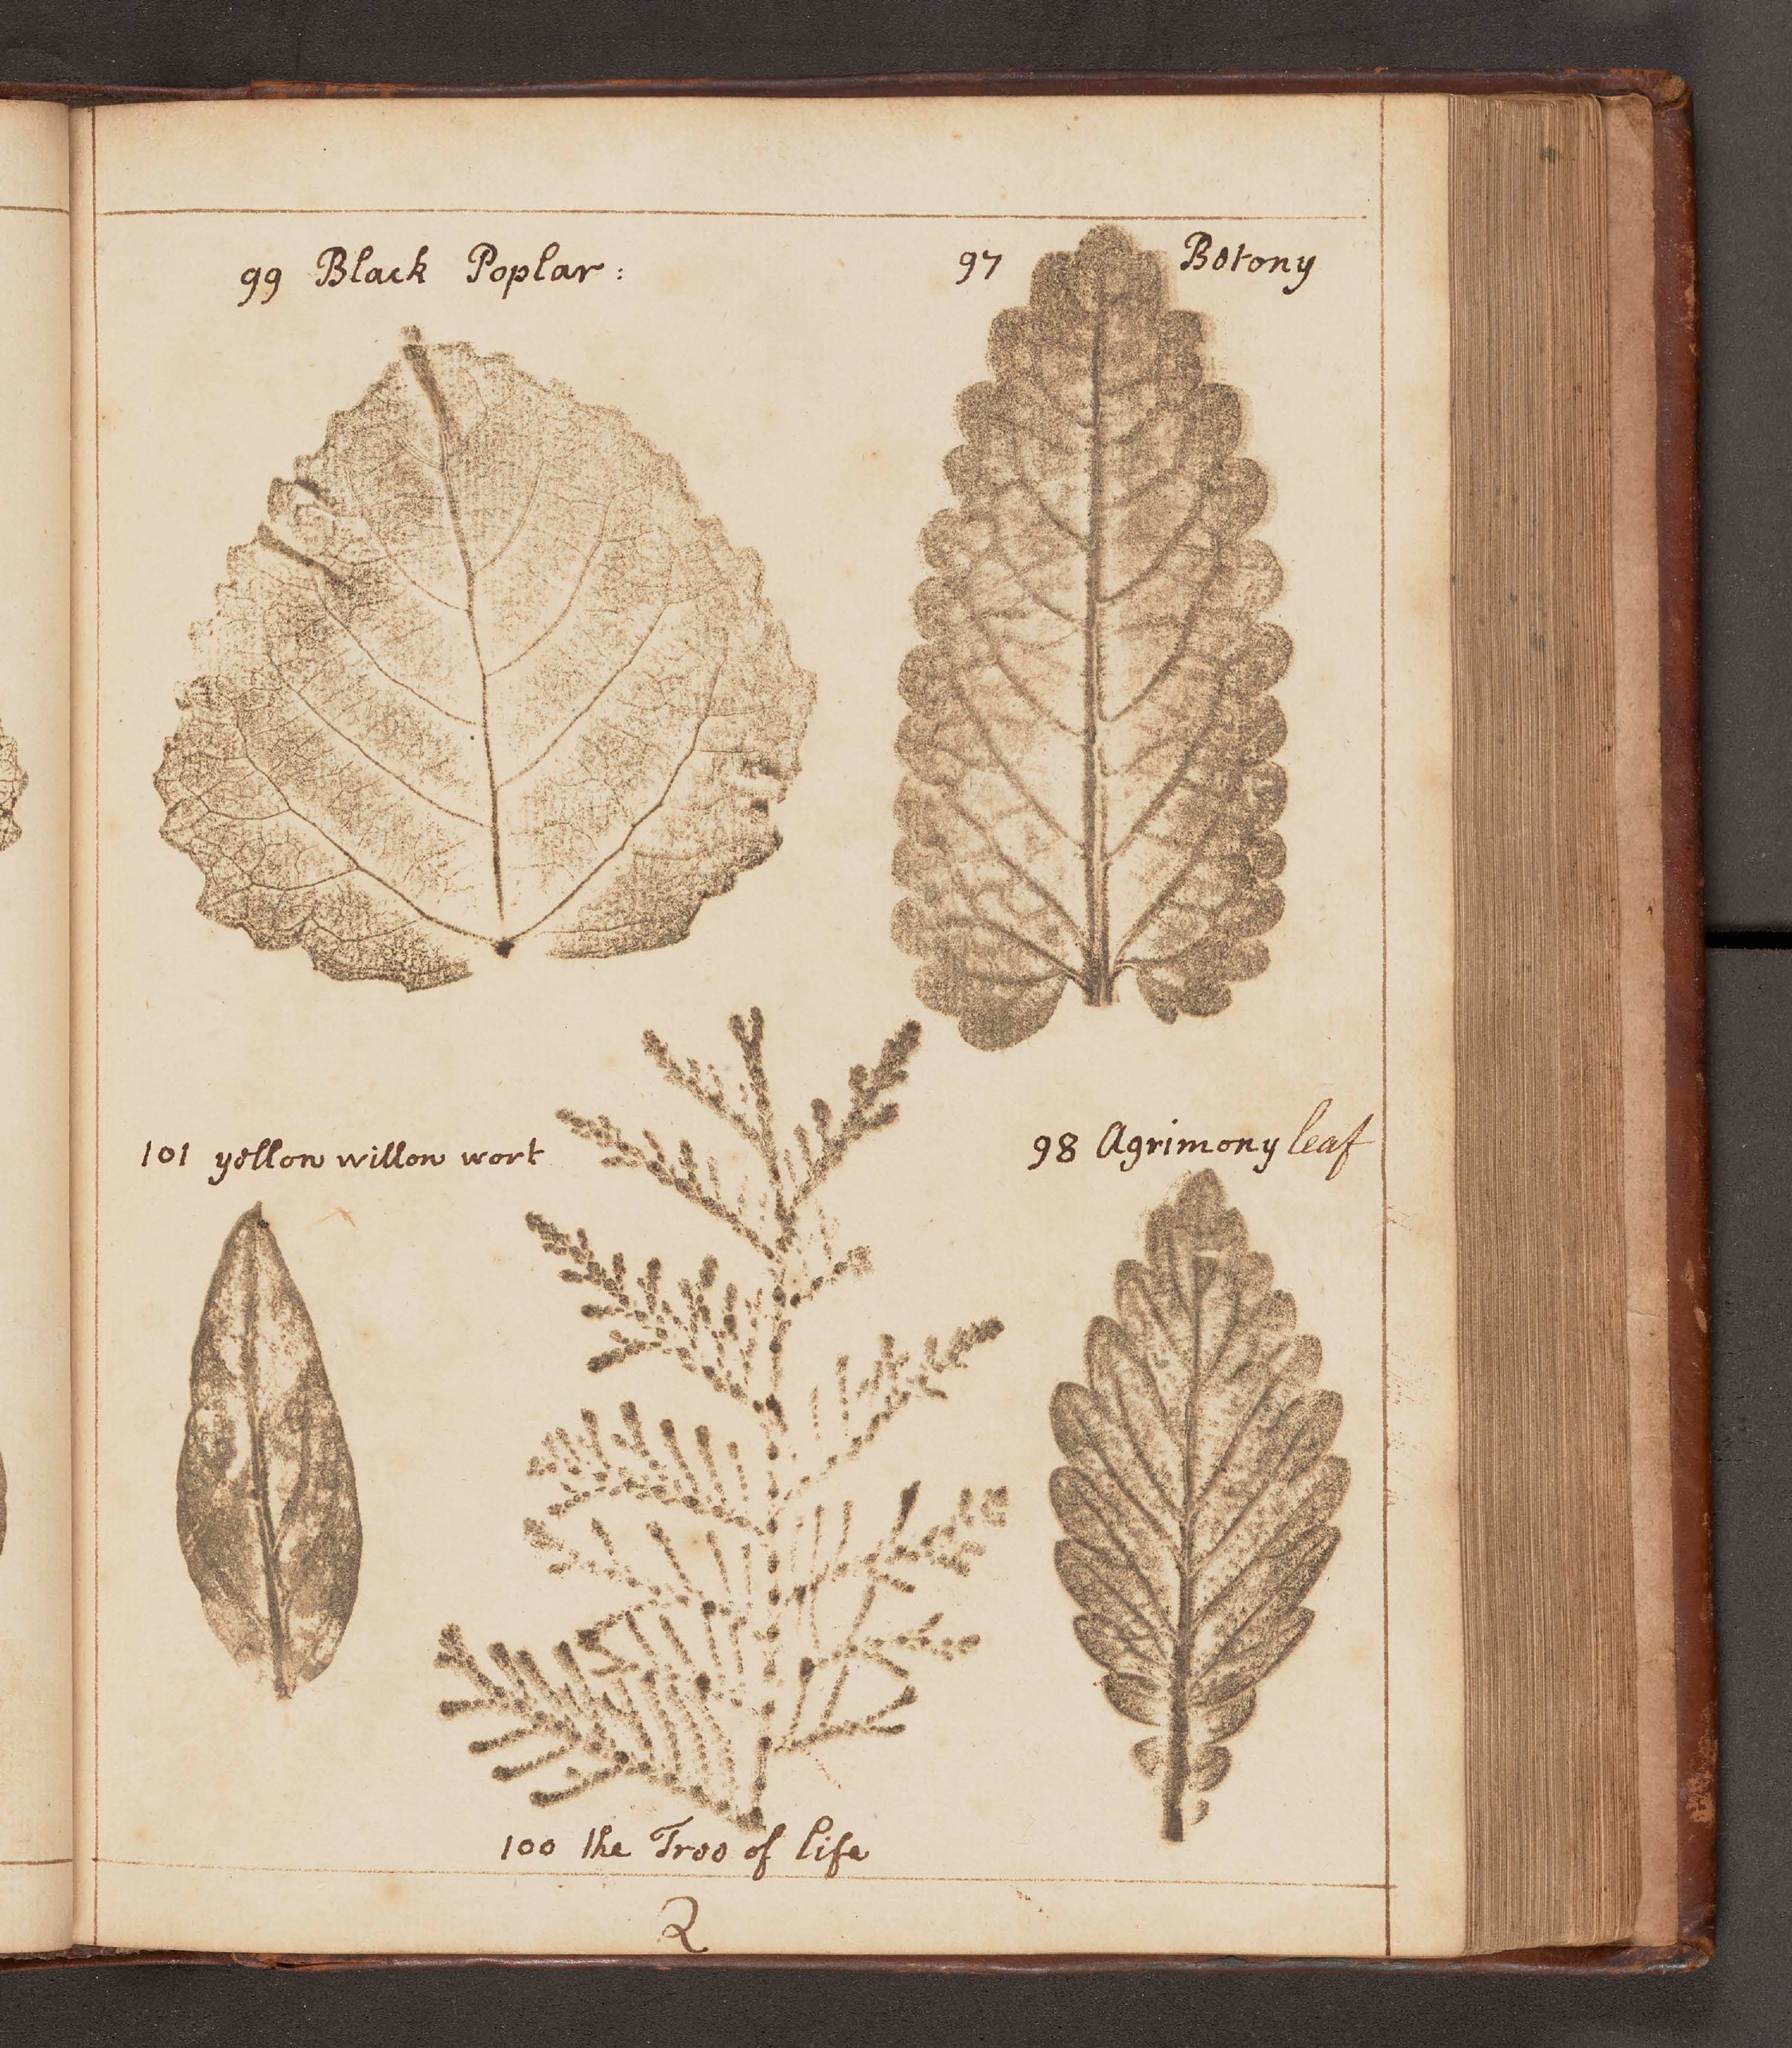 99 Black Poplar:
97 Betony
101 yellow willow wort
98 Agrimony leaf
100 the Tree of life
2